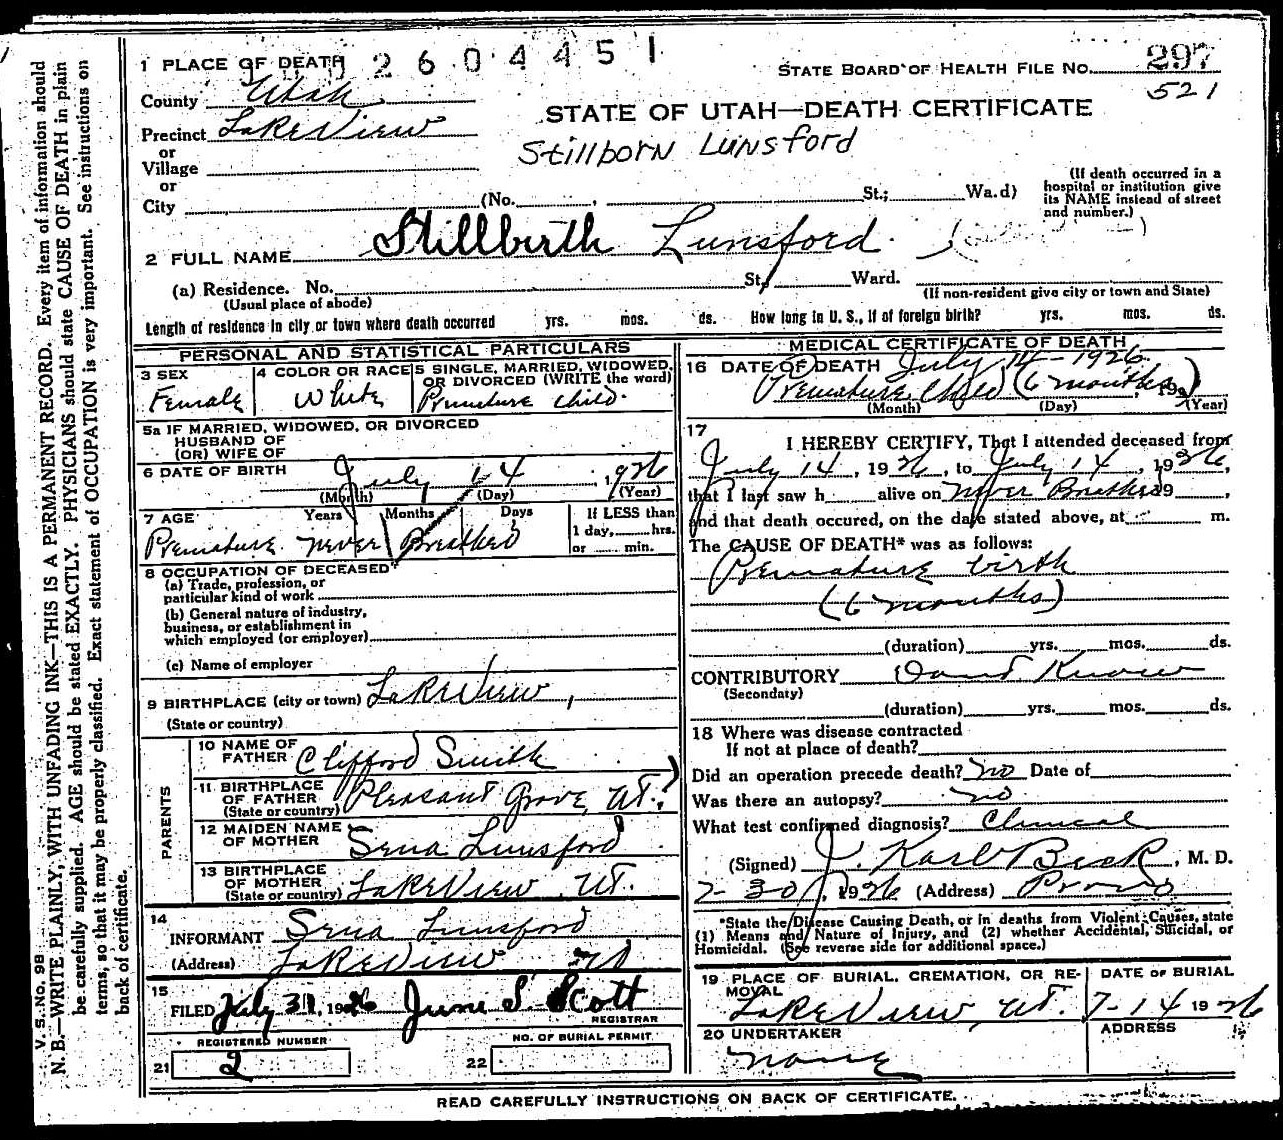 1 PLACE OF DEATH 2604451
STATE BOARD OF HEALTH FILE NO. 297
County Utah
521
STATE OF UTAH—DEATH CERTIFICATE
Precinct LakeView
Stillborn Lunsford
or
Village
or
City (No. , St.; Wa.d)
(If death occurred in a hospital or institution give its NAME instead of street and number.)
2 FULL NAME Stillbirth Lunsford
(a) Residence. No. St., Ward.
(Usual place of abode) (If non-resident give city or town and State)
Length of residence in city or town where death occurred yrs. mos. ds. How long in U. S., if of foreign birth? yrs. mos. ds.
PERSONAL AND STATISTICAL PARTICULARS
3 SEX Female
4 COLOR OR RACE White
5 SINGLE, MARRIED, WIDOWED, OR DIVORCED (WRITE the word) Premature child.
5a IF MARRIED, WIDOWED, OR DIVORCED
HUSBAND OF
(OR) WIFE OF
6 DATE OF BIRTH July 14, 1926
(Month) (Day) (Year)
7 AGE Years Months Days If LESS than
1 day, hrs.
or min.
Premature. never Breathed
8 OCCUPATION OF DECEASED
(a) Trade, profession, or
particular kind of work
(b) General nature of industry,
business, or establishment in
which employed (or employer)
(c) Name of employer
9 BIRTHPLACE (city or town) LakeView,
(State or country)
PARENTS
10 NAME OF FATHER Clifford Smith
11 BIRTHPLACE OF FATHER (State or country) Pleasant Grove, Ut.
12 MAIDEN NAME OF MOTHER Sena Lunsford
13 BIRTHPLACE OF MOTHER (State or country) LakeView, Ut.
14
INFORMANT Sena Lunsford
(Address) LakeView
15
FILED July 31, 1926 June S. Scott
REGISTRAR
REGISTERED NUMBER
21 2
NO. OF BURIAL PERMIT
22
MEDICAL CERTIFICATE OF DEATH
16 DATE OF DEATH July 14 - 1926
Premature Child (6 months), 192
(Month) (Day) (Year)
17
I HEREBY CERTIFY, That I attended deceased from
July 14, 1926, to July 14, 1926,
that I last saw h alive on Never Breathed 19 ,
and that death occured, on the date stated above, at m.
The CAUSE OF DEATH* was as follows:
Premature birth
(6 months)
(duration) yrs. mos. ds.
CONTRIBUTORY Don't Know
(Secondary)
(duration) yrs. mos. ds.
18 Where was disease contracted
If not at place of death?
Did an operation precede death? no Date of
Was there an autopsy? no
What test confirmed diagnosis? Clinical
(Signed) J. Karl Beck, M. D.
7-30, 1926 (Address) Provo
*State the Disease Causing Death, or in deaths from Violent Causes, state
(1) Means and Nature of Injury, and (2) whether Accidental, Suicidal, or
Homicidal. (See reverse side for additional space.)
19 PLACE OF BURIAL, CREMATION, OR REMOVAL LakeView, Ut.
DATE OF BURIAL 7-14 1926
20 UNDERTAKER None
ADDRESS
READ CAREFULLY INSTRUCTIONS ON BACK OF CERTIFICATE.
V. S. No. 98
N. B.—WRITE PLAINLY, WITH UNFADING INK—THIS IS A PERMANENT RECORD. Every item of information should
be carefully supplied. AGE should be stated EXACTLY. PHYSICIANS should state CAUSE OF DEATH in plain
terms, so that it may be properly classified. Exact statement of OCCUPATION is very important. See instructions on
back of certificate.